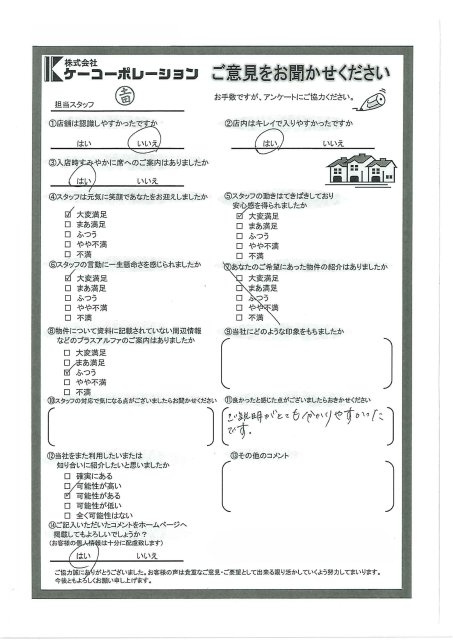 株式会社
ケーコーポレーション
ご意見をお聞かせください
担当スタッフ
お手数ですが、アンケートにご協力ください。
①店舗は認識しやすかったですか
はい いいえ
②店内はキレイで入りやすかったですか
はい いいえ
③入店時すみやかに席へのご案内はありましたか
はい いいえ
④スタッフは元気に笑顔であなたをお迎えしましたか
☑ 大変満足
□ まあ満足
□ ふつう
□ やや不満
□ 不満
⑤スタッフの動きはてきぱきしており
安心感を得られましたか
☑ 大変満足
□ まあ満足
□ ふつう
□ やや不満
□ 不満
⑥スタッフの言動に一生懸命さを感じられましたか
☑ 大変満足
□ まあ満足
□ ふつう
□ やや不満
□ 不満
⑦あなたのご希望にあった物件の紹介はありましたか
□ 大変満足
□ まあ満足
□ ふつう
□ やや不満
□ 不満
⑧物件について資料に記載されていない周辺情報
などのプラスアルファのご案内はありましたか
□ 大変満足
□ まあ満足
☑ ふつう
□ やや不満
□ 不満
⑨当社にどのような印象をもちましたか
⑩スタッフの対応で気になる点がございましたらお聞かせください
⑪良かったと感じた点がございましたらおきかせください
ご説明がとても分かりやすかった
です。
⑫当社をまた利用したいまたは
知り合いに紹介したいと思いましたか
□ 確実にある
□ 可能性が高い
☑ 可能性がある
□ 可能性が低い
□ 全く可能性はない
⑬その他のコメント
⑭ご記入いただいたコメントをホームページへ
掲載してもよろしいでしょうか?
(お客様の個人情報は十分に配慮致します)
はい いいえ
ご協力誠にありがとうございました。お客様の声は貴重なご意見・ご要望として出来る限り活かしていくよう努力してまいります。
今後ともよろしくお願い申し上げます。